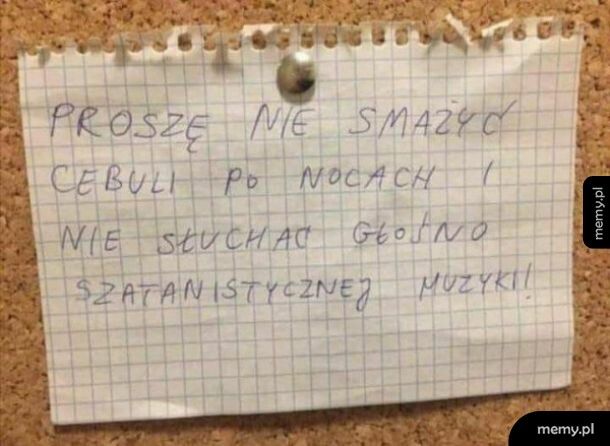 PROSZĘ NIE SMAŻYĆ
CEBULI PO NOCACH I
NIE SŁUCHAĆ GŁOŚNO
SZATANISTYCZNEJ MUZYKI!
memy.pl
memy.pl